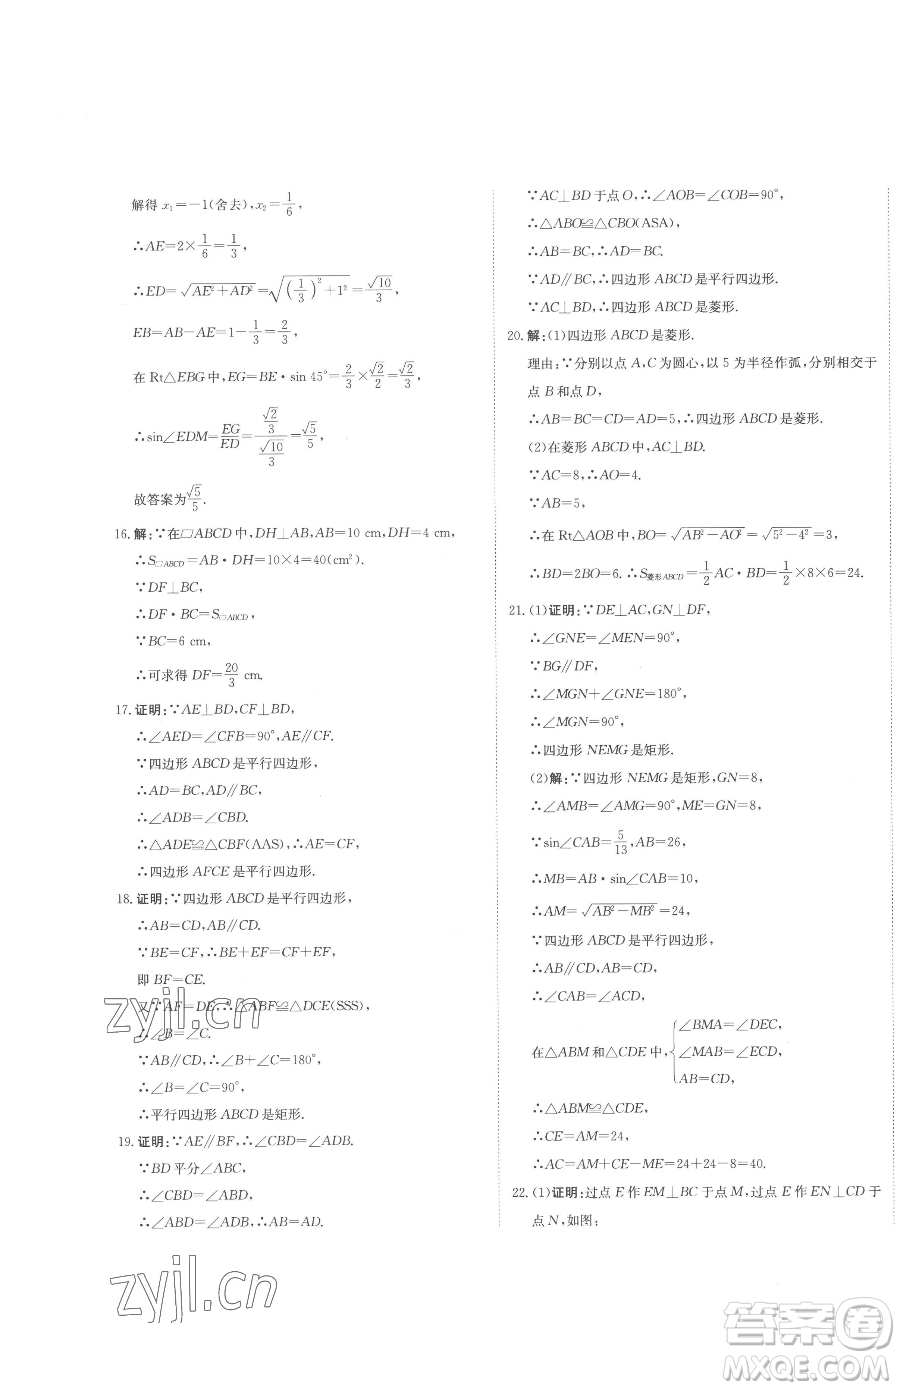 解得 x₁=-1(舍去),x₂=1/6,
∴AE=2×1/6=1/3,
∴ED=√(AE²+AD²)=√((1/3)²+1²)=√10/3,
EB=AB-AE=1-1/3=2/3,
在 Rt△EBG 中,EG=BE·sin 45°=2/3×√2/2=√2/3,
∴sin∠EDM=EG/ED=(√2/3)/(√10/3)=√5/5,
故答案为√5/5.
16. 解:∵在▱ABCD 中,DH⊥AB,AB=10 cm,DH=4 cm,
∴S▱ABCD=AB·DH=10×4=40(cm²).
∵DF⊥BC,
∴DF·BC=S▱ABCD,
∵BC=6 cm,
∴可求得 DF=20/3 cm.
17. 证明:∵AE⊥BD,CF⊥BD,
∴∠AED=∠CFB=90°,AE∥CF.
∵四边形 ABCD 是平行四边形,
∴AD=BC,AD∥BC,
∴∠ADB=∠CBD.
∴△ADE≌△CBF(AAS),∴AE=CF,
∴四边形 AFCE 是平行四边形.
18. 证明:∵四边形 ABCD 是平行四边形,
∴AB=CD,AB∥CD.
∵BE=CF,∴BE+EF=CF+EF,
即 BF=CE.
又∵AF=DE,∴△ABF≌△DCE(SSS),
∴∠B=∠C.
∵AB∥CD,∴∠B+∠C=180°,
∴∠B=∠C=90°,
∴平行四边形 ABCD 是矩形.
19. 证明:∵AE∥BF,∴∠CBD=∠ADB.
∵BD 平分∠ABC,
∴∠CBD=∠ABD,
∴∠ABD=∠ADB,∴AB=AD.
∵AC⊥BD 于点 O,∴∠AOB=∠COB=90°,
∴△ABO≌△CBO(ASA),
∴AB=BC,∴AD=BC.
∵AD∥BC,∴四边形 ABCD 是平行四边形.
∵AC⊥BD,∴四边形 ABCD 是菱形.
20. 解:(1)四边形 ABCD 是菱形.
理由:∵分别以点 A,C 为圆心,以 5 为半径作弧,分别相交于
点 B 和点 D,
∴AB=BC=CD=AD=5,∴四边形 ABCD 是菱形.
(2)在菱形 ABCD 中,AC⊥BD.
∵AC=8,∴AO=4.
∵AB=5,
∴在 Rt△AOB 中,BO=√(AB²-AO²)=√(5²-4²)=3,
∴BD=2BO=6. ∴S菱形ABCD=1/2 AC·BD=1/2×8×6=24.
21. (1)证明:∵DE⊥AC,GN⊥DF,
∴∠GNE=∠MEN=90°,
∵BG∥DF,
∴∠MGN+∠GNE=180°,
∴∠MGN=90°,
∴四边形 NEMG 是矩形.
(2)解:∵四边形 NEMG 是矩形,GN=8,
∴∠AMB=∠AMG=90°,ME=GN=8,
∵sin∠CAB=5/13,AB=26,
∴MB=AB·sin∠CAB=10,
∴AM=√(AB²-MB²)=24,
∵四边形 ABCD 是平行四边形,
∴AB∥CD,AB=CD,
∴∠CAB=∠ACD,
在△ABM 和△CDE 中,{∠BMA=∠DEC,
∠MAB=∠ECD,
AB=CD,
∴△ABM≌△CDE,
∴CE=AM=24,
∴AC=AM+CE-ME=24+24-8=40.
22. (1)证明:过点 E 作 EM⊥BC 于点 M,过点 E 作 EN⊥CD 于
点 N,如图:
zyjl.cn
zyjl.cn
答案圈
MXQE.COM